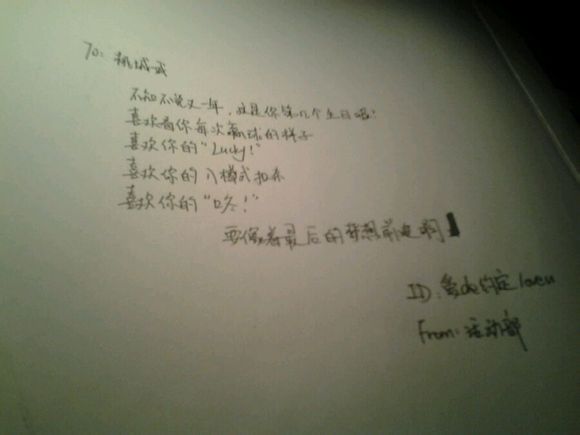 To: 桃城武
不知不觉又一年,这是你第几个生日呢?
喜欢看你每次赢球的样子
喜欢你的"Lucky!"
喜欢你的入樽式扣杀
喜欢你的"咚!"
要像着最后的梦想前进啊
ID: de约定loveu
From: 活动部